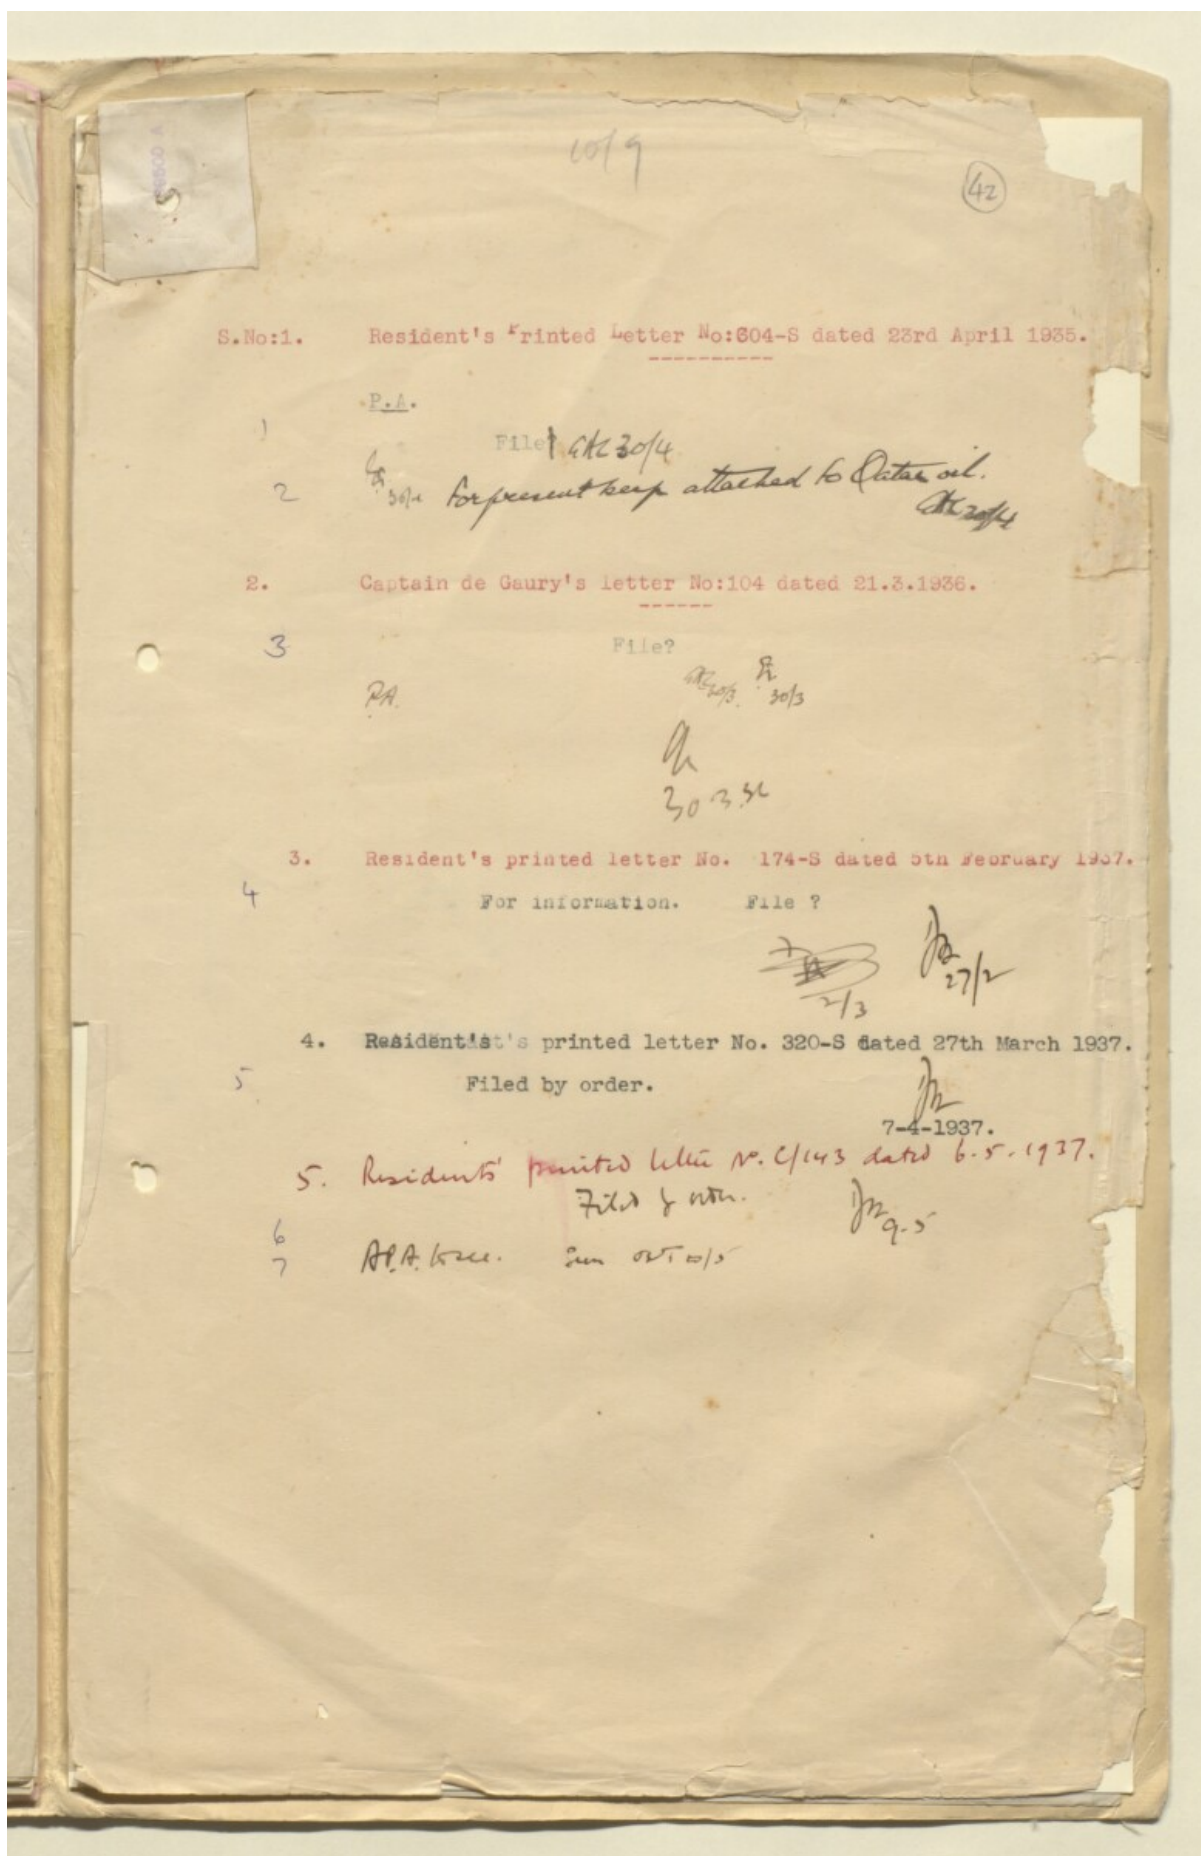 10/9
42
S.No:1. Resident's Printed Letter No:604-S dated 23rd April 1935.
P.A.
1
File? 30/4
2 30/4 For present keep attached to Qatar oil.
30/4
2. Captain de Gaury's letter No:104 dated 21.3.1936.
3 File?
P.A. 30/3 30/3
30 3 36
3. Resident's printed letter No. 174-S dated 5th February 1937.
4 For information. File ?
27/2
2/3
4. Resident's printed letter No. 320-S dated 27th March 1937.
5 Filed by order.
7-4-1937.
5. Residents' printed letter No. C/143 dated 6-5-1937.
Filed by order.
9-5
6
7 A.P.A. to see. Seen 10/5